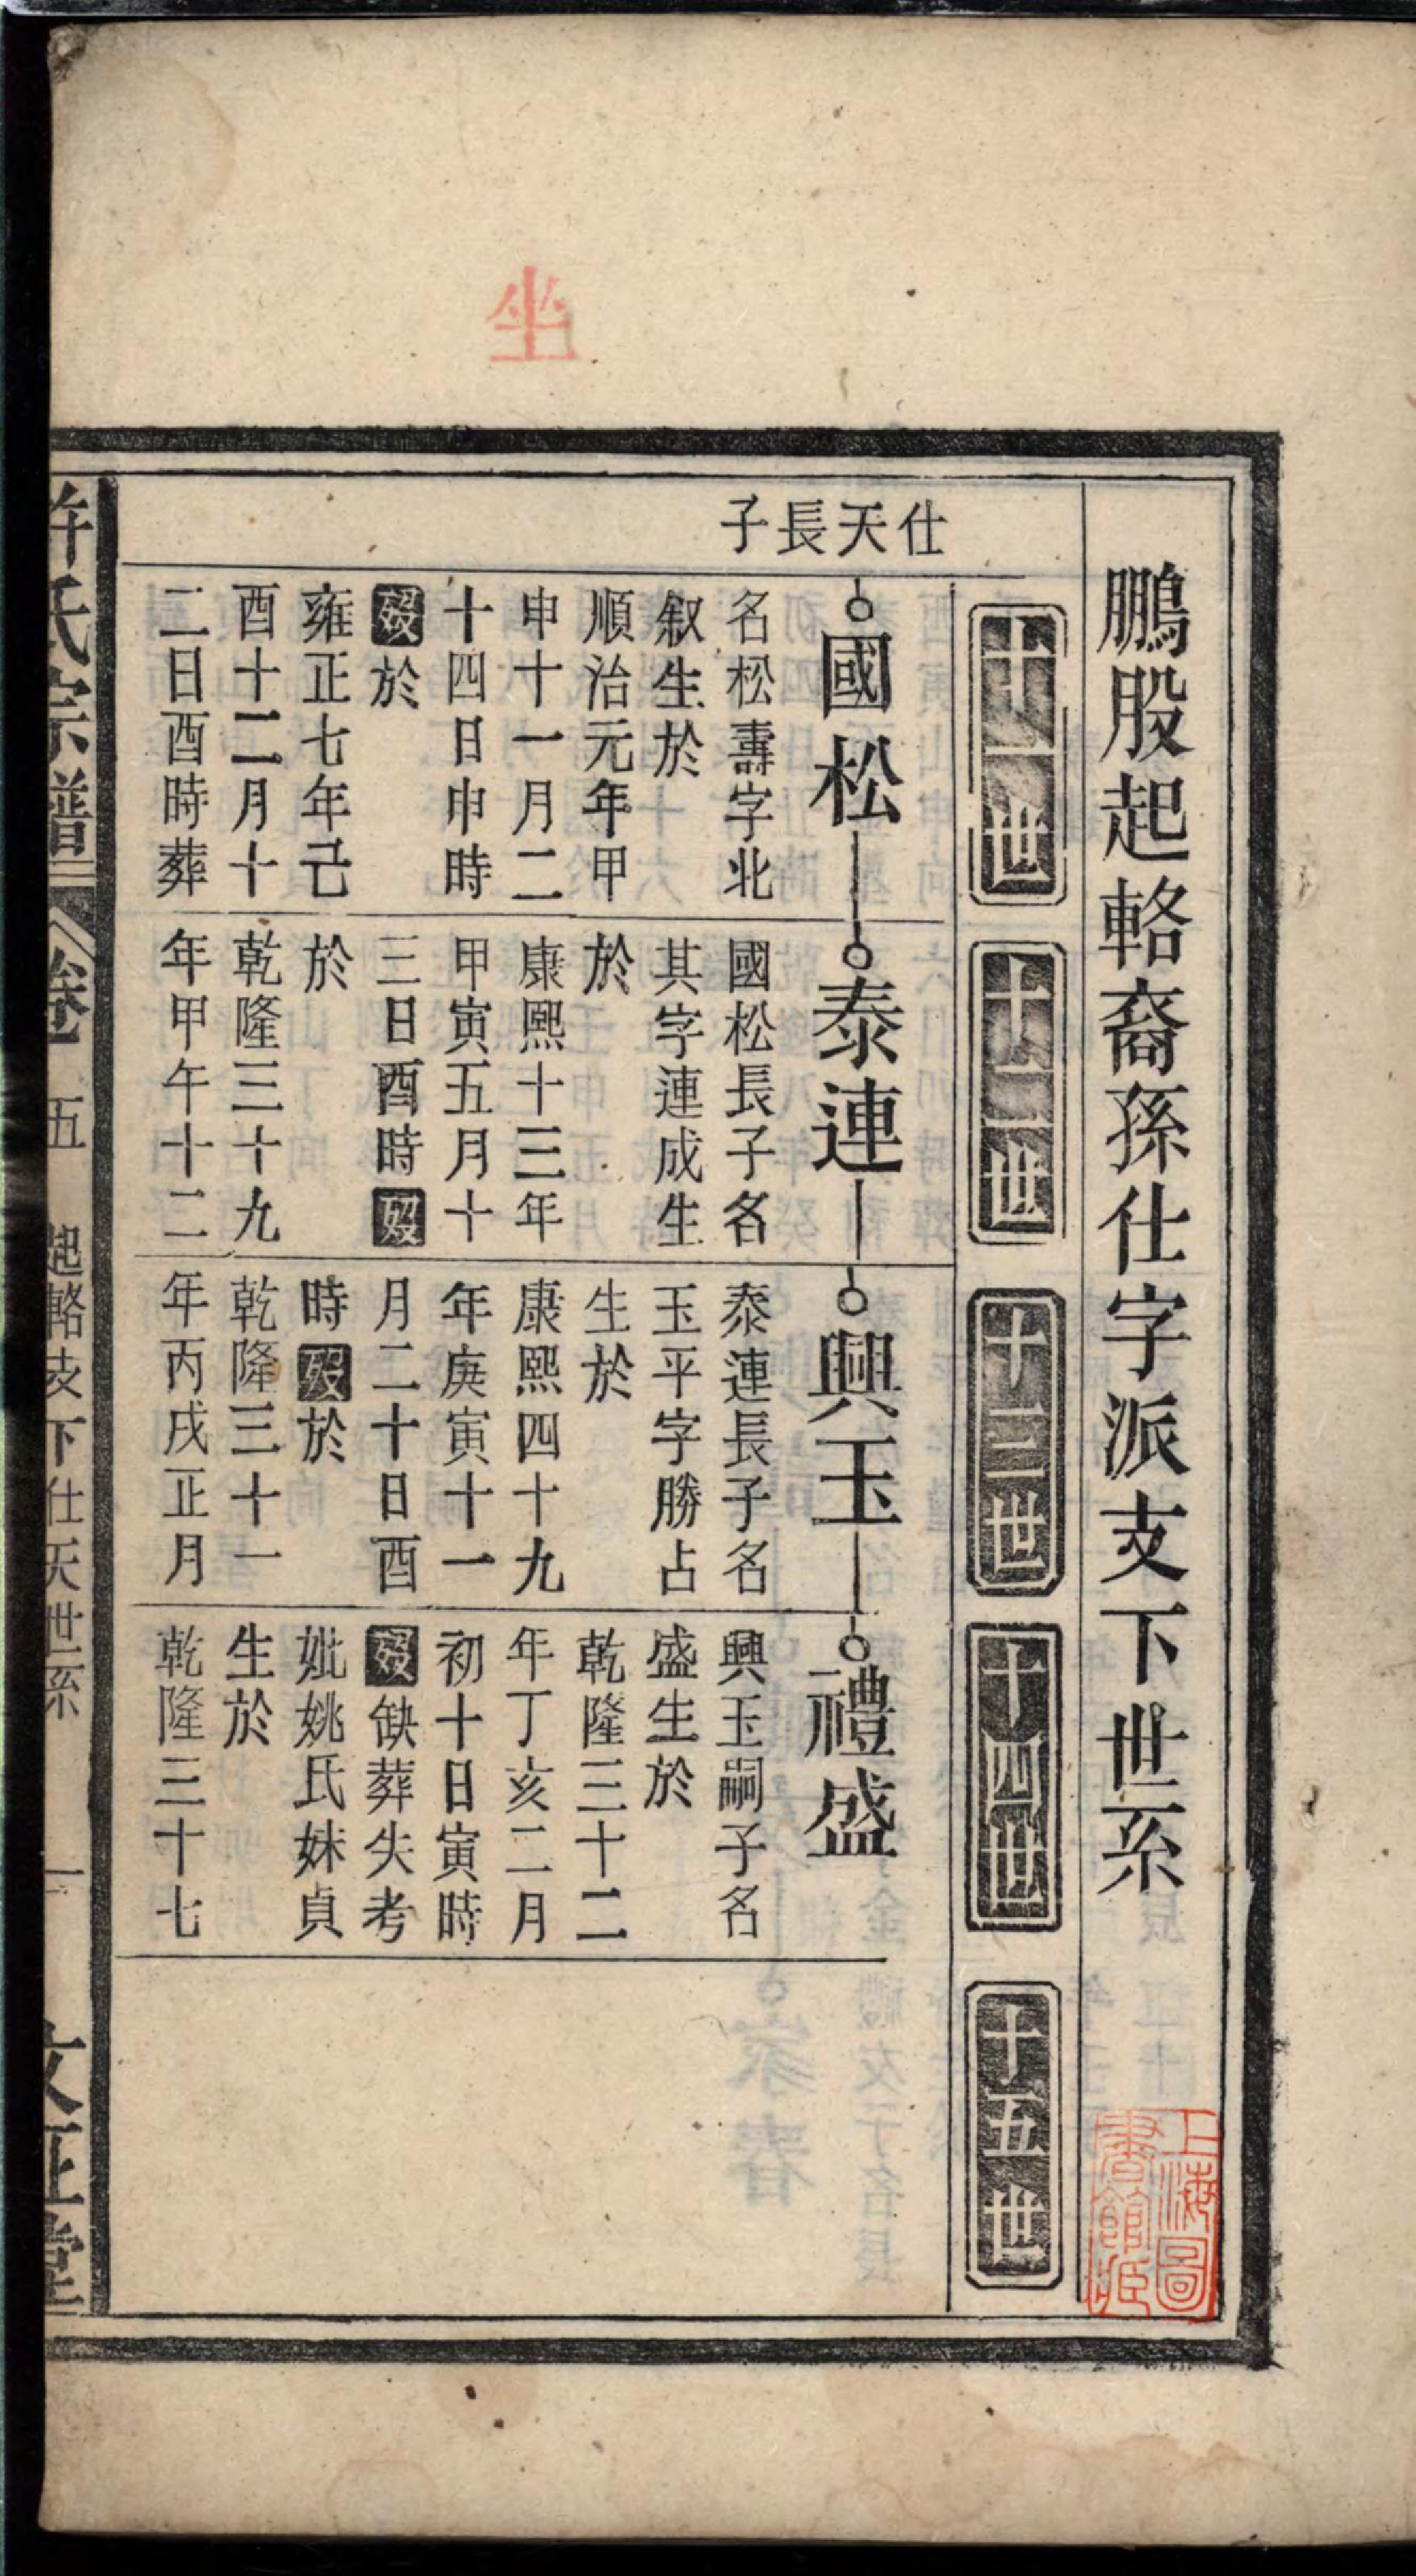 坐
鵬股起輅裔孫仕字派支下世系
十一世
十二世
十三世
十四世
十五世
仕天長子
國松
名松壽字北
叙生於
順治元年甲
申十一月二
十四日申時
歿於
雍正七年己
酉十二月十
二日酉時葬
泰連
國松長子名
其字連成生
於
康熙十三年
甲寅五月十
三日酉時歿
於
乾隆三十九
年甲午十二
興玉
泰連長子名
玉平字勝占
生於
康熙四十九
年庚寅十一
月二十日酉
時歿於
乾隆三十一
年丙戌正月
禮盛
興玉嗣子名
盛生於
乾隆三十二
年丁亥二月
初十日寅時
歿缺葬失考
妣姚氏妹貞
生於
乾隆三十七
許氏宗譜
卷五
起輅支下仕天世系
一
文正堂
上海圖
書館藏